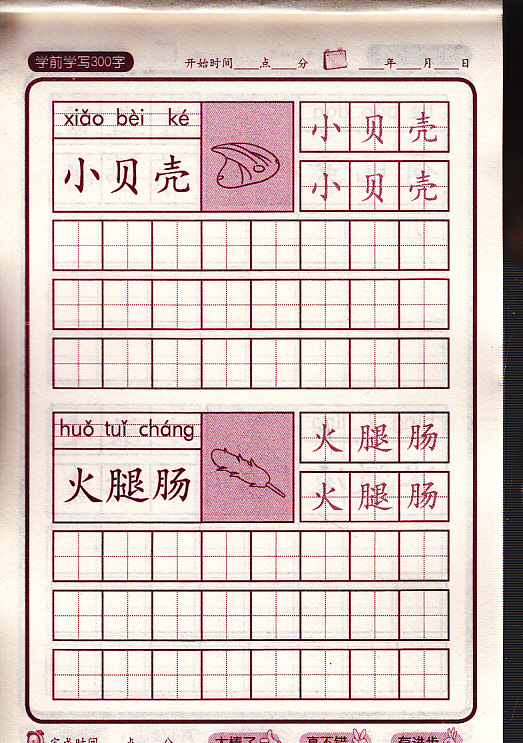 学前学写300字 开始时间____点____分 ____年____月____日
xiǎo bèi ké
小贝壳
小贝壳
小贝壳
huǒ tuǐ cháng
火腿肠
火腿肠
火腿肠
完成时间 点 分 太棒了 真不错 有进步